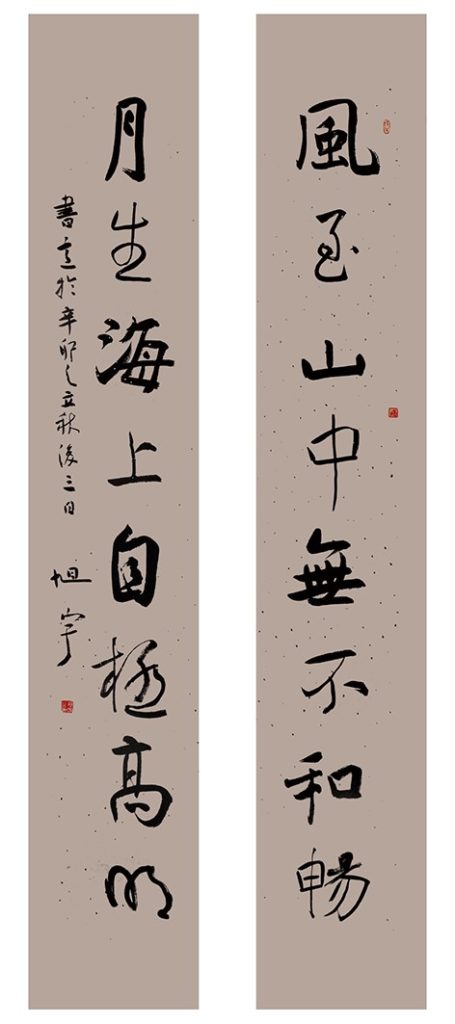 風至山中無不和暢
月生海上自極高明
書意於辛卯之立秋後三日
旭宇